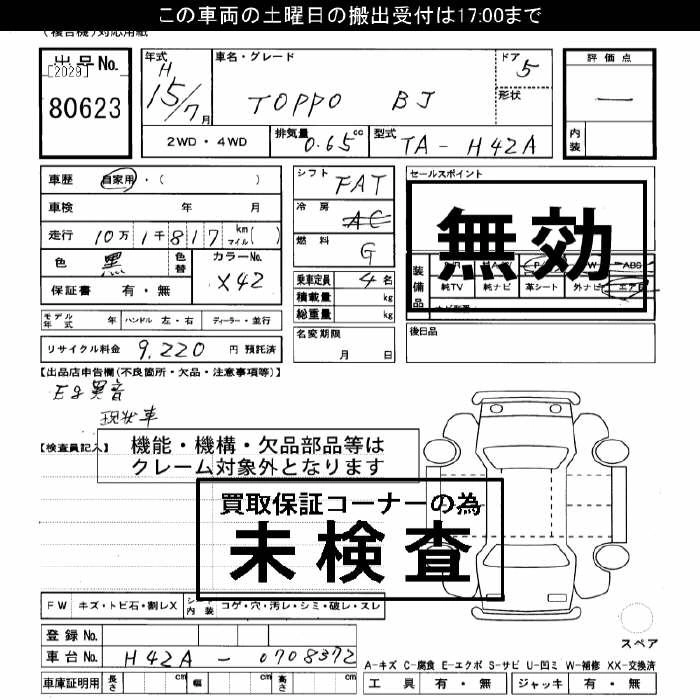 この車両の土曜日の搬出受付は17:00まで
(複合機)対応用紙
出品No.
[2029]
80623
年式
H
15/7月
車名・グレード
TOPPO BJ
ドア
5
形状
評価点
—
内装
2WD・4WD
排気量 0.65cc
型式 TA-H42A
車歴 自家用・( )
車検 年 月
走行 10万1千817 km マイル( )
色 黒 色替
カラーNo. X42
保証書 有・無
シフト FAT
冷房 AC
燃料 G
乗車定員 4名
積載量 kg
総重量 kg
セールスポイント
無効
装備品
ABS
純TV 純ナビ 革シート 外ナビ エアB
モデル年式 年 ハンドル 左・右 ディーラー・並行
名変期限
月 日
後日品
リサイクル料金 9,220 円 預託済
【出品店申告欄(不良箇所・欠品・注意事項等)】
Eg異音
現状車
【検査員記入】
機能・機構・欠品部品等は
クレーム対象外となります
買取保証コーナーの為
未検査
FW キズ・トビ石・割レX シート内装 コゲ・穴・汚レ・シミ・破レ・スレ
スペア
登録No.
車台No. H42A-0708372
A-キズ C-腐食 E-エクボ S-サビ U-凹ミ W-補修 XX-交換済
車庫証明用 長さ cm 幅 cm 高さ cm
工具 有・無 ジャッキ 有・無